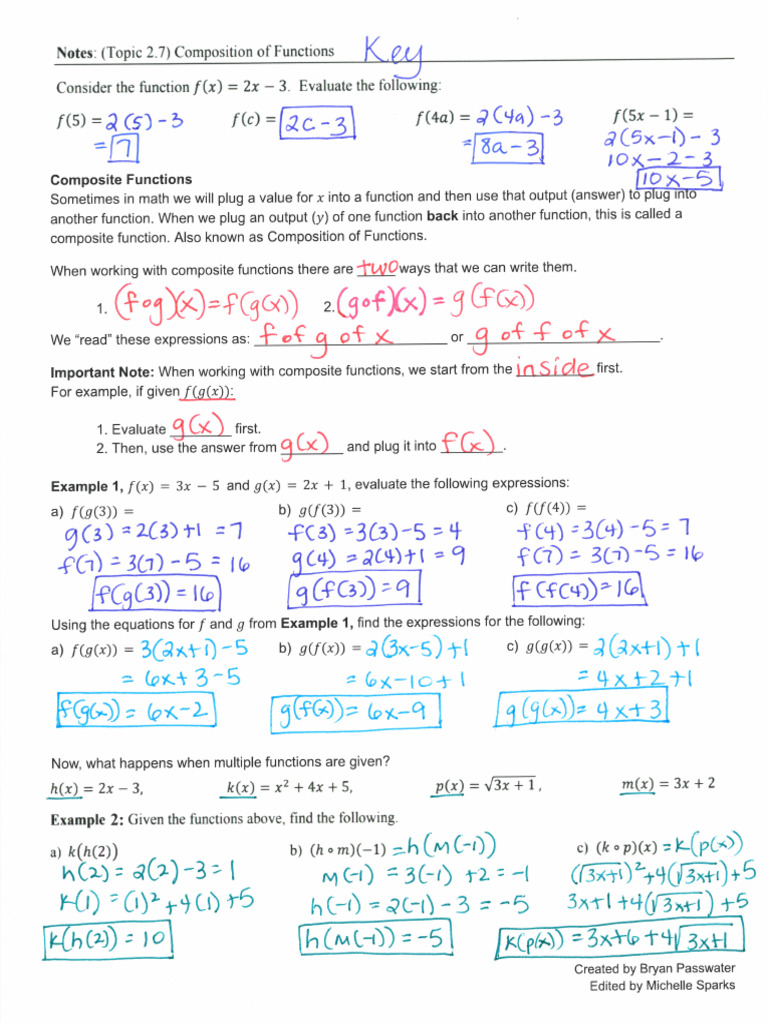 Notes: (Topic 2.7) Composition of Functions Key
Consider the function f(x) = 2x − 3. Evaluate the following:
f(5) = 2(5) − 3 f(c) = 2c − 3 f(4a) = 2(4a) − 3 f(5x − 1) =
= 7 = 8a − 3 2(5x−1) − 3
10x − 2 − 3
10x − 5
Composite Functions
Sometimes in math we will plug a value for x into a function and then use that output (answer) to plug into
another function. When we plug an output (y) of one function back into another function, this is called a
composite function. Also known as Composition of Functions.
When working with composite functions there are two ways that we can write them.
1. (fog)(x) = f(g(x)) 2. (gof)(x) = g(f(x))
We “read” these expressions as: f of g of x or g of f of x.
Important Note: When working with composite functions, we start from the inside first.
For example, if given f(g(x)):
1. Evaluate g(x) first.
2. Then, use the answer from g(x) and plug it into f(x).
Example 1, f(x) = 3x − 5 and g(x) = 2x + 1, evaluate the following expressions:
a) f(g(3)) = b) g(f(3)) = c) f(f(4)) =
g(3) = 2(3) + 1 = 7 f(3) = 3(3) − 5 = 4 f(4) = 3(4) − 5 = 7
f(7) = 3(7) − 5 = 16 g(4) = 2(4) + 1 = 9 f(7) = 3(7) − 5 = 16
f(g(3)) = 16 g(f(3)) = 9 f(f(4)) = 16
Using the equations for f and g from Example 1, find the expressions for the following:
a) f(g(x)) = 3(2x+1) − 5 b) g(f(x)) = 2(3x−5) + 1 c) g(g(x)) = 2(2x+1) + 1
= 6x + 3 − 5 = 6x − 10 + 1 = 4x + 2 + 1
f(g(x)) = 6x − 2 g(f(x)) = 6x − 9 g(g(x)) = 4x + 3
Now, what happens when multiple functions are given?
h(x) = 2x − 3, k(x) = x² + 4x + 5, p(x) = √(3x + 1), m(x) = 3x + 2
Example 2: Given the functions above, find the following.
a) k(h(2)) b) (h ∘ m)(−1) = h(m(−1)) c) (k ∘ p)(x) = k(p(x))
h(2) = 2(2) − 3 = 1 m(−1) = 3(−1) + 2 = −1 (√(3x+1))² + 4(√(3x+1)) + 5
k(1) = (1)² + 4(1) + 5 h(−1) = 2(−1) − 3 = −5 3x + 1 + 4(√(3x+1)) + 5
k(h(2)) = 10 h(m(−1)) = −5 k(p(x)) = 3x + 6 + 4√(3x+1)
Created by Bryan Passwater
Edited by Michelle Sparks